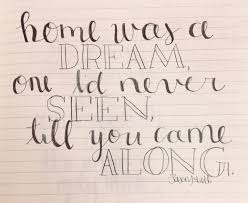 home was a
DREAM,
one I'd never
SEEN,
till you came
ALONG.